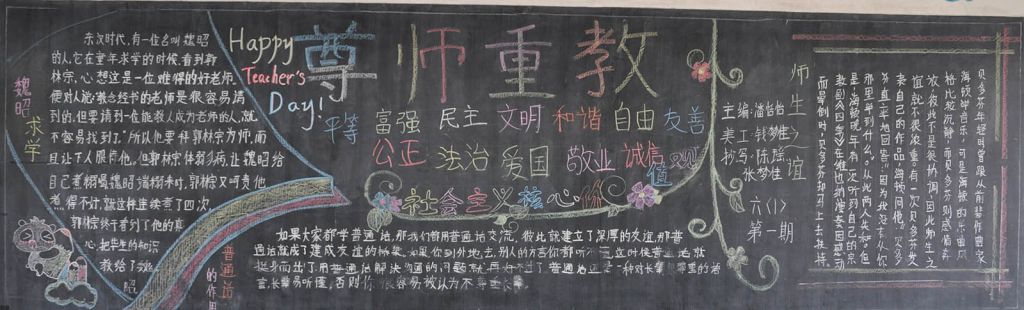 魏昭
求学
东汉时代,有一位名叫魏昭
的人,它在童年求学的时候,看到郭
林宗,心想这是一位难得的好老师,
便对人说:教念经书的老师是很容易请
到的,但要请到一位能教人成为老师的人,就
不容易找到了。"所以他要拜郭林宗为师,而
且让下人服侍他。但郭林宗体弱多病,让魏昭给
自己煮粥
煮得不好,就这样连续责了四次
郭林宗终于看到了他的真
心,把毕生的知识
教给了魏
昭
Happy
Teacher's
Day!
尊师重教
平等 富强 民主 文明 和谐 自由 友善
公正 法治 爱国 敬业 诚信
社会主义核心价值观
普通话
的作用
如果大家都学普通话,那我们都用普通话交流,彼此就建立了深厚的友谊,那普
通话就成了建成友谊的桥梁,如果你到外地去,别人的方言你都听不
挺身而出了用普通话解决沟通的问题
言,长辈易听懂,否则你很容易被认为不尊重长辈。
师生之谊
主编:潘
美工:钱梦佳
抄写:陈瑶
张梦佳
六(1)
第一期
贝多芬年轻时曾跟从前辈作曲家
海顿学音乐,可是海顿的乐曲风
格比较沉静,而贝多芬则感情奔
放,彼此不是很协调,因此师生之
谊就不很浓重。有一次贝多芬发
表自己的作品,海顿问他:贝多
芬直率地回答:因为我没有从你
那里学到什么。从此两人失和。但
是,海顿晚年有一次听到自己的宗
教剧《四季》
而晕倒时,贝多芬却马上去扶持。